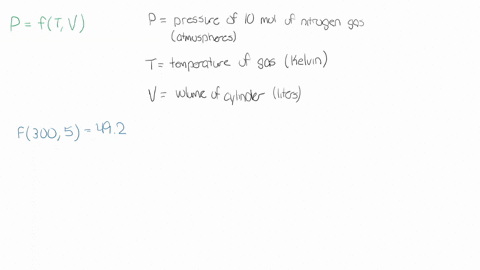 P = f(T, V)
P = pressure of 10 mol of nitrogen gas
(atmospheres)
T = temperature of gas (Kelvin)
V = volume of cylinder (liters)
F(300, 5) = 49.2